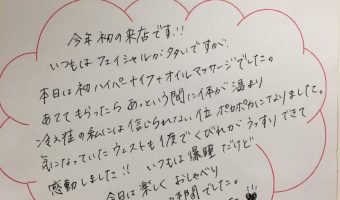 今年初の来店です!!
いつもはフェイシャルが多いですが、
本日は初ハイパーナイフ+オイルマッサージでした。
あててもらったらあっという間に体が温まり
冷え症の私には信じられない位ポカポカになりました。
気になっていたウェストも1度でくびれがうっすりできて
感動しました!! いつもは爆睡だけど
今日は楽しくおしゃべり
時間でした。